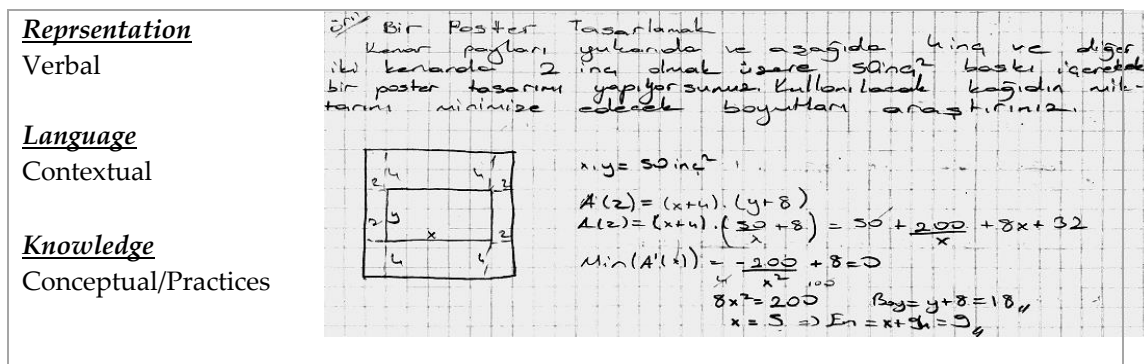 Reprsentation
Verbal
Language
Contextual
Knowledge
Conceptual/Practices
Bir Poster Tasarlamak
Kenar payları yukarıda ve aşağıda 4 inç ve diğer
iki kenarda 2 inç olmak üzere 50inç² baskı içerecek
bir poster tasarımı yapıyorsunuz. Kullanılacak kağıdın mik-
tarını minimize edecek boyutları araştırınız.
2 4 4 2
2 y x 2
4 4
x.y = 50 inç²
A(2) = (x+4).(y+8)
A(2) = (x+4).(50/x +8) = 50 + 200/x + 8x + 32
Min(A'(x)) = -200/x² + 8 = 0
8x² = 200 Boy = y+8 = 18
x = 5 => En = x+4 = 9